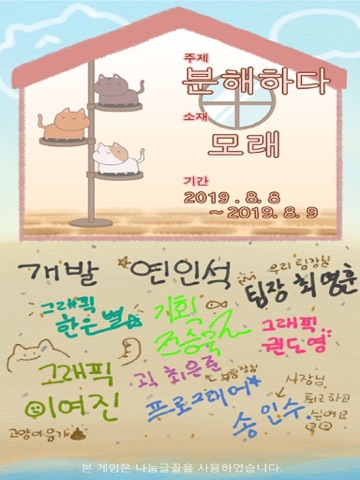 주제
분해하다
소재
모래
기간
2019. 8. 8
~ 2019. 8. 9
개발 연인석
우리 팀장님
팀장 최명훈
그래픽
한은별
기획
그래픽
권도영
그래픽
이여진
기획 최은준
프로그래머
송인수
사장님
퇴근하고
싶어요
본 게임은 나눔글꼴을 사용하였습니다.